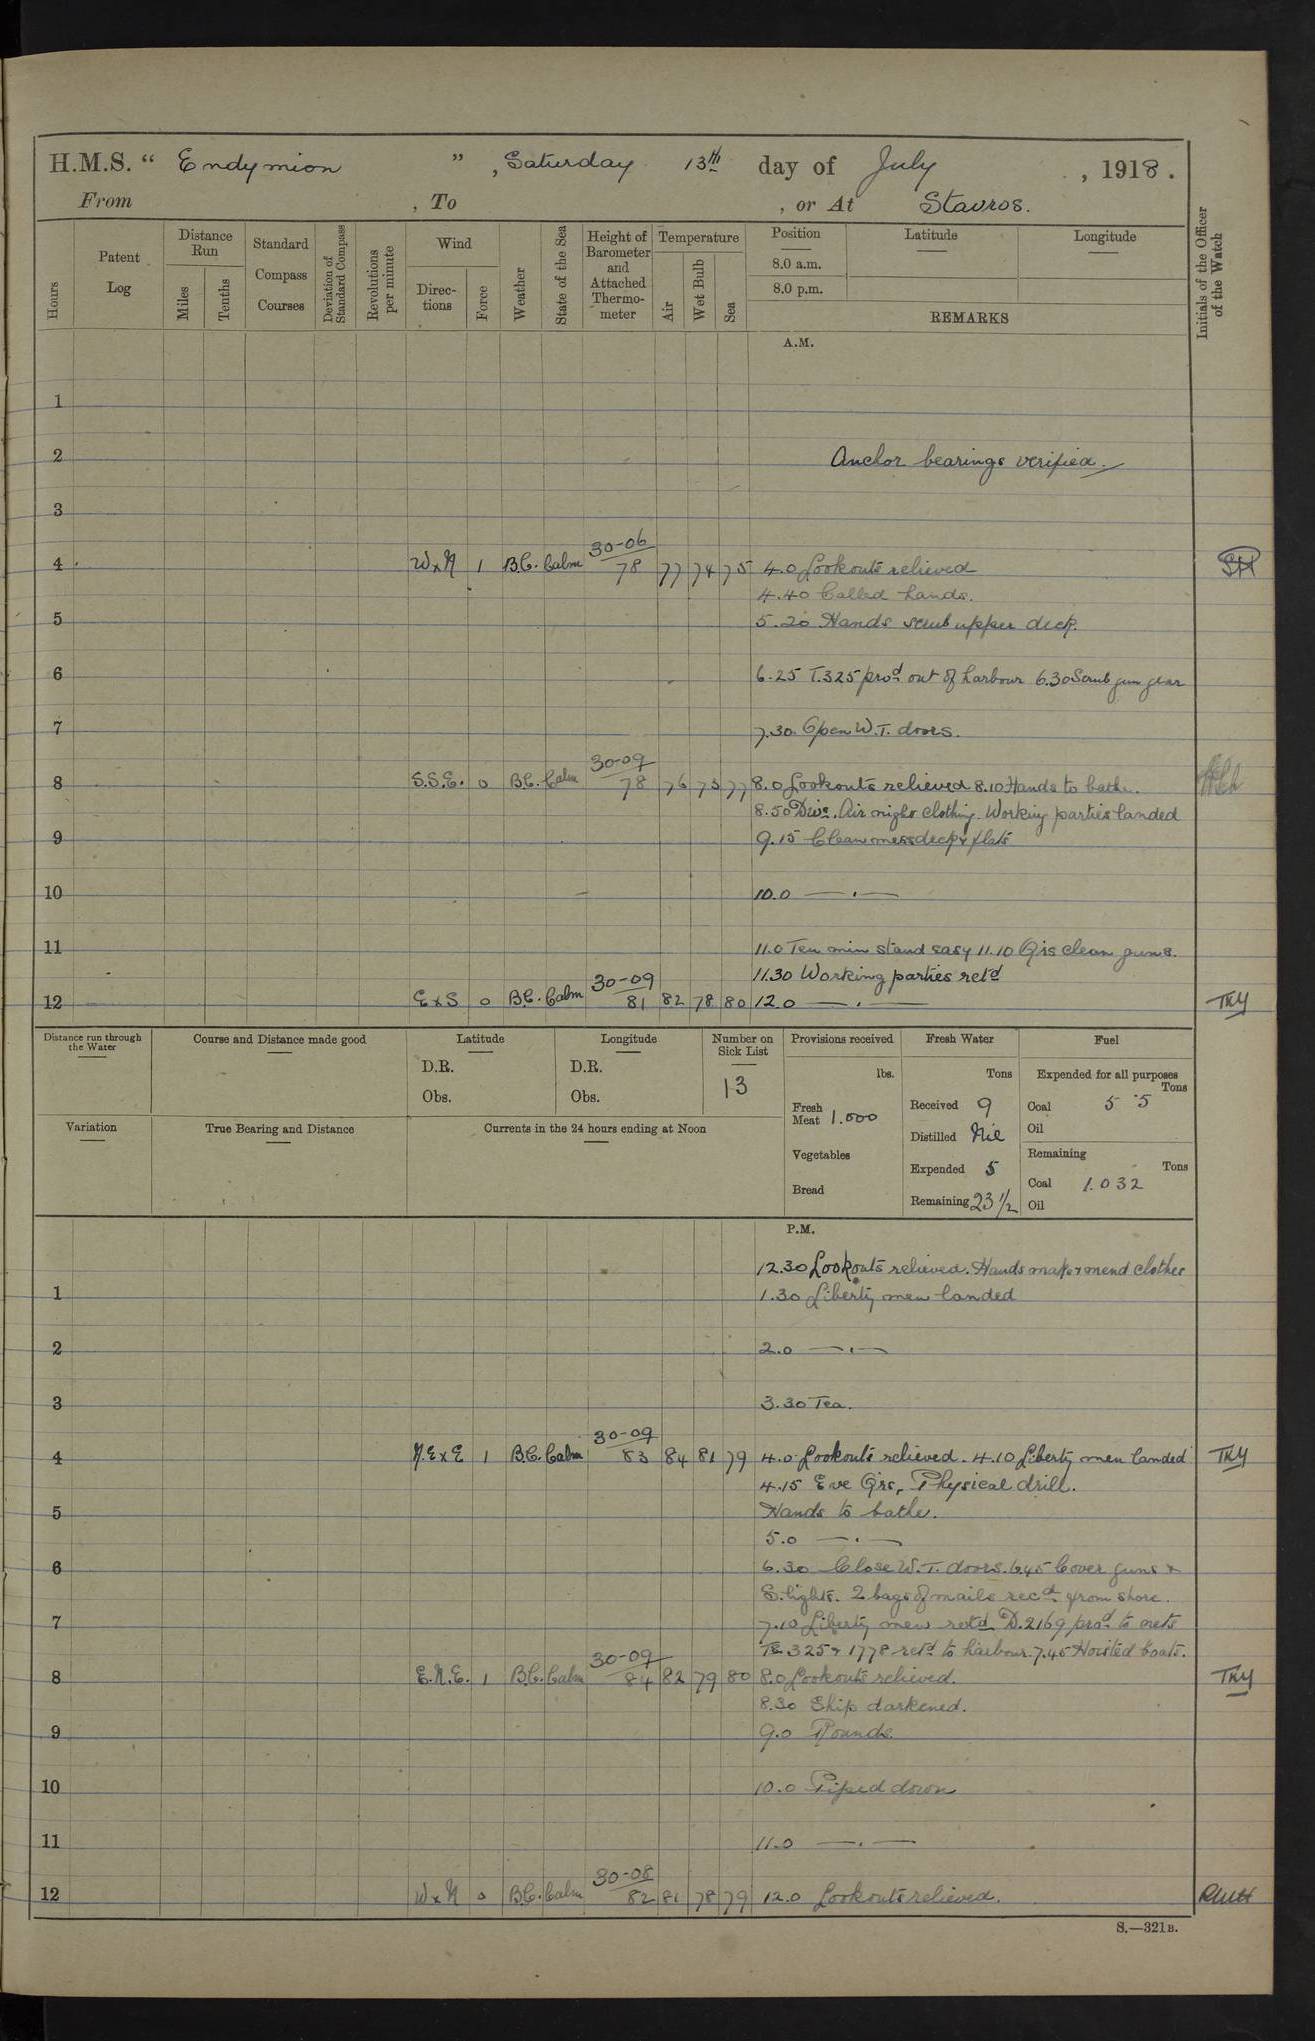 H.M.S. “ Endymion ” , Saturday 13th day of July , 1918 .
From , To , or At Stavros.
Hours
Patent Log
Distance Run
Miles
Tenths
Standard Compass Courses
Deviation of Standard Compass
Revolutions per minute
Wind
Directions
Force
Weather
State of the Sea
Height of Barometer and Attached Thermometer
Temperature
Air
Wet Bulb
Sea
Position
8.0 a.m.
8.0 p.m.
Latitude
Longitude
REMARKS
Initials of the Officer of the Watch
A.M.
1
2 Anchor bearings verified.
3
30-06
4 W x N 1 B.C. Calm 78 77 74 75 4.0 Lookouts relieved
4.40 Called hands.
5 5.20 Hands scrub upper deck.
6 6.25 T.325 procd out of harbour 6.30 Scrub gun gear
7 7.30 Open W.T. doors.
30-09
8 S.S.E. 0 B.C. Calm 78 76 73 77 8.0 Lookouts relieved 8.10 Hands to bathe.
8.50 Divs. Air night clothing. Working parties landed
9 9.15 Clean messdeck & flats
10 10.0 —.—
11 11.0 Ten min stand easy 11.10 Qrs clean guns.
11.30 Working parties retd
30-09
12 E x S 0 B.C. Calm 81 82 78 80 12.0 —.— TKY
Distance run through the Water
Course and Distance made good
Latitude
D.R.
Obs.
Longitude
D.R.
Obs.
Number on Sick List
13
Provisions received
lbs.
Fresh Meat 1.000
Vegetables
Bread
Fresh Water
Tons
Received 9
Distilled Nil
Expended 5
Remaining 23 1/2
Fuel
Expended for all purposes
Tons
Coal 5 . 5
Oil
Remaining
Tons
Coal 1.032
Oil
Variation
True Bearing and Distance
Currents in the 24 hours ending at Noon
P.M.
12.30 Lookouts relieved. Hands make & mend clothes
1 1.30 Liberty men landed
2 2.0 —.—
3 3.30 Tea.
30-09
4 N.E x E 1 B.C. Calm 83 84 81 79 4.0 Lookouts relieved. 4.10 Liberty men landed TKY
4.15 Eve Qrs, Physical drill.
5 Hands to bathe.
5.0 —.—
6 6.30 Close W.T. doors. 6.45 Cover guns &
S. lights. 2 bags of mails recd from shore.
7 7.10 Liberty men retd D.2169 procd to nets
TB 325 & 1778 retd to harbour. 7.45 Hoisted boats.
30-09
8 E.N.E. 1 B.C. Calm 84 82 79 80 8.0 Lookouts relieved. TKY
8.30 Ship darkened.
9 9.0 Rounds.
10 10.0 Piped down
11 11.0 —.—
30-08
12 W x N 0 B.C. Calm 82 81 78 79 12.0 Lookouts relieved.
S.—321B.